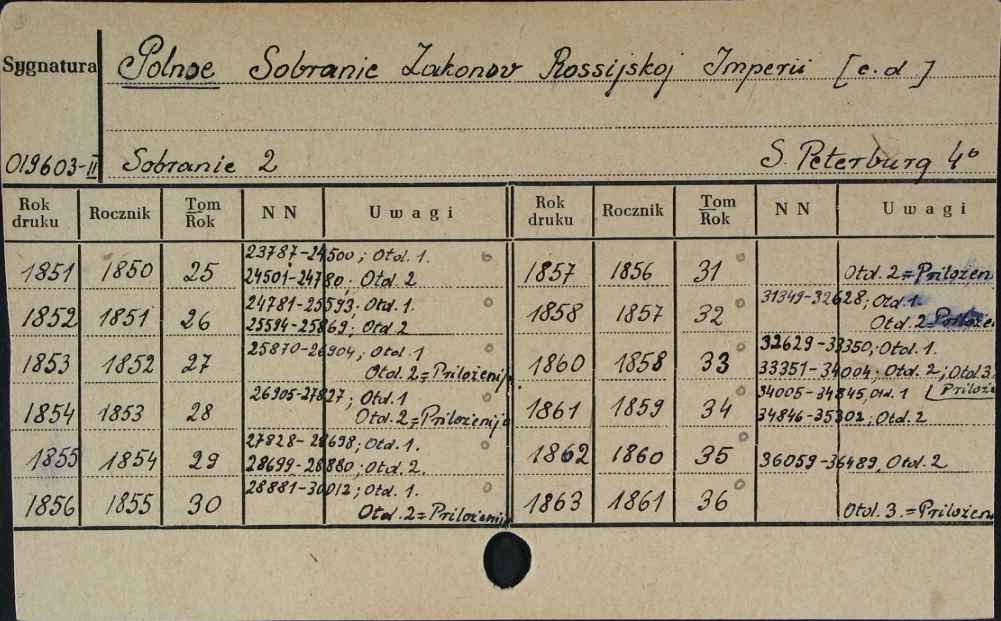 Sygnatura Polnoe Sobranie Zakonov Rossijskoj Imperii [c.d]
019603-II Sobranie 2 S. Peterburg 4°
Rok druku Rocznik Tom Rok NN Uwagi
1851 1850 25 23787-24500; Otd. 1.
24501-24780; Otd. 2
1852 1851 26 24781-25593; Otd. 1.
25594-25869; Otd. 2
1853 1852 27 25870-26904; Otd. 1
Otd. 2=Priloženija
1854 1853 28 26905-27827; Otd. 1
Otd. 2=Priloženija
1855 1854 29 27828-28698; Otd. 1.
28699-28880; Otd. 2.
1856 1855 30 28881-30012; Otd. 1.
Otd. 2=Priloženija
Rok druku Rocznik Tom Rok NN Uwagi
1857 1856 31 Otd. 2=Priložen
1858 1857 32 31349-32628; Otd. 1.
Otd. 2=Prilože
1860 1858 33 32629-33350; Otd. 1.
33351-34004; Otd. 2; Otd. 3.
Prilože
1861 1859 34 34005-34845, Otd. 1
34846-35302; Otd. 2
1862 1860 35 36059-36489, Otd. 2
1863 1861 36 Otd. 3.=Priložen